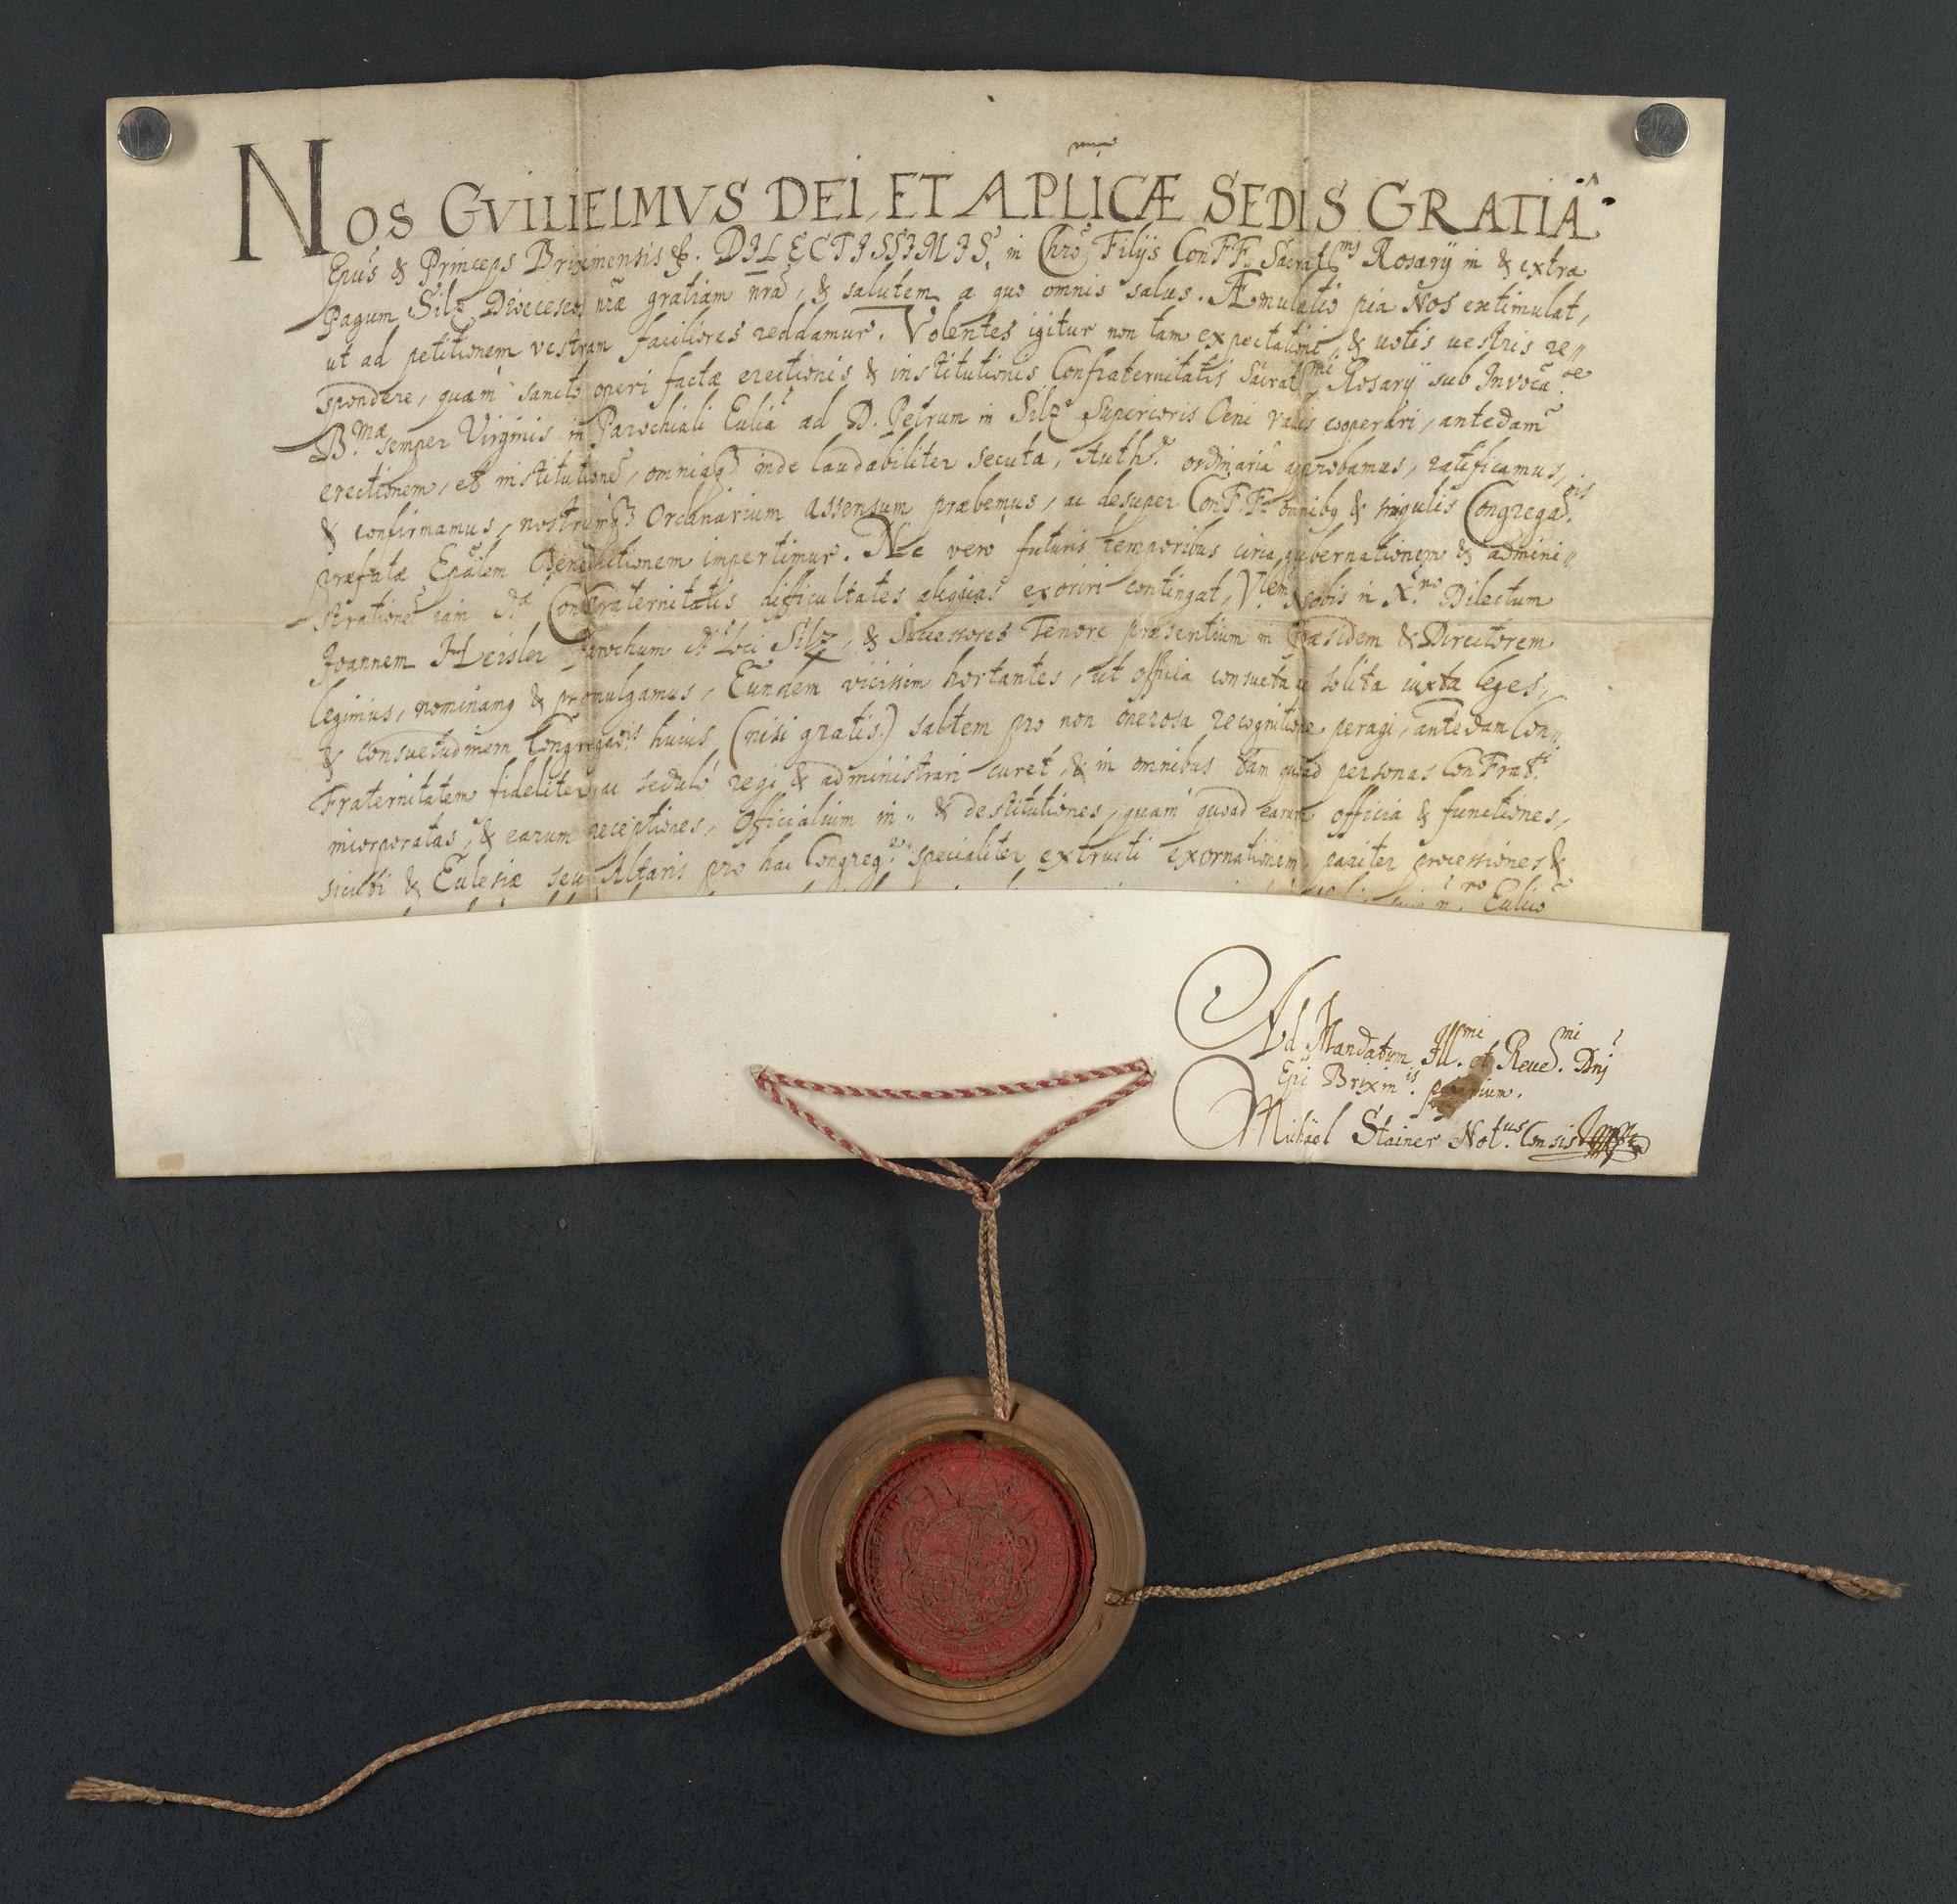 NOS GVILIELMVS DEI, ET APLICÆ SEDIS GRATIÂ
Epus & Princeps Brixinensis &. DILECTISSIMIS, in Chro Filijs ConFF. Sacratmi Rosarij in & extra
Pagum Silz Dioeceseos nræ gratiam nrã, & salutem a quo omnis salus. Æmulatio pia Nos extimulat,
ut ad petitionem vestram faciliores reddamur. Volentes igitur non tam expectationi, & votis vestris re„
spondere, quam sancto operi factæ erectionis & institutionis Confraternitatis Sacratmi Rosarij sub Invocãoe
B.mæ semper Virginis in Parochiali Ecclia ad D. Petrum in Silz Superioris Oeni vallis cooperari, antedam
erectionem, et institutionẽ, omniaq3 inde laudabiliter secuta, Auth.e ordinaria approbamus, ratificamus,
& confirmamus, nostrumq3 Ordinarium assensum præbemus, ac desuper ConF.F. omnibq & singulis Congregaõis.
præfatæ Epãlem Benedictionem impertimur. Ne vero futuris temporibus circa gubernationem & admini„
strationẽ eam d.æ Confraternitatis difficultates aliquas exoriri contingat, Vlem Nobis in X.no Dilectum
Joannem Heisler Parochum d. Loci Silz, & Successores Tenore præsentium in Præsidem & Directorem
legimus, nominamq & promulgamus, Eundem vicissim hortantes, ut officia consueta ac solita iuxta leges,
& consuetudinem Congregaõis huius (nisi gratis) saltem pro non onerosa recognitione peragi, antedam Con„
Fraternitatem fideliter, ac seduló regi & administrari curet, & in omnibus tam quoad personas ConFrat.ti
incorporatas, & earum receptiones, Officialium in„ & destitutiones, quam quoad earum officia & functiones,
sicuti & Ecclesiæ seu Altaris pro hac Congreg.ne specialiter extructi exornationem, pariter processiones &
Ad Mandatum Ill.mi et Reued.mi Dnj
Epi Brixin.is proprium.
Michaël Stainer Not.us Consis